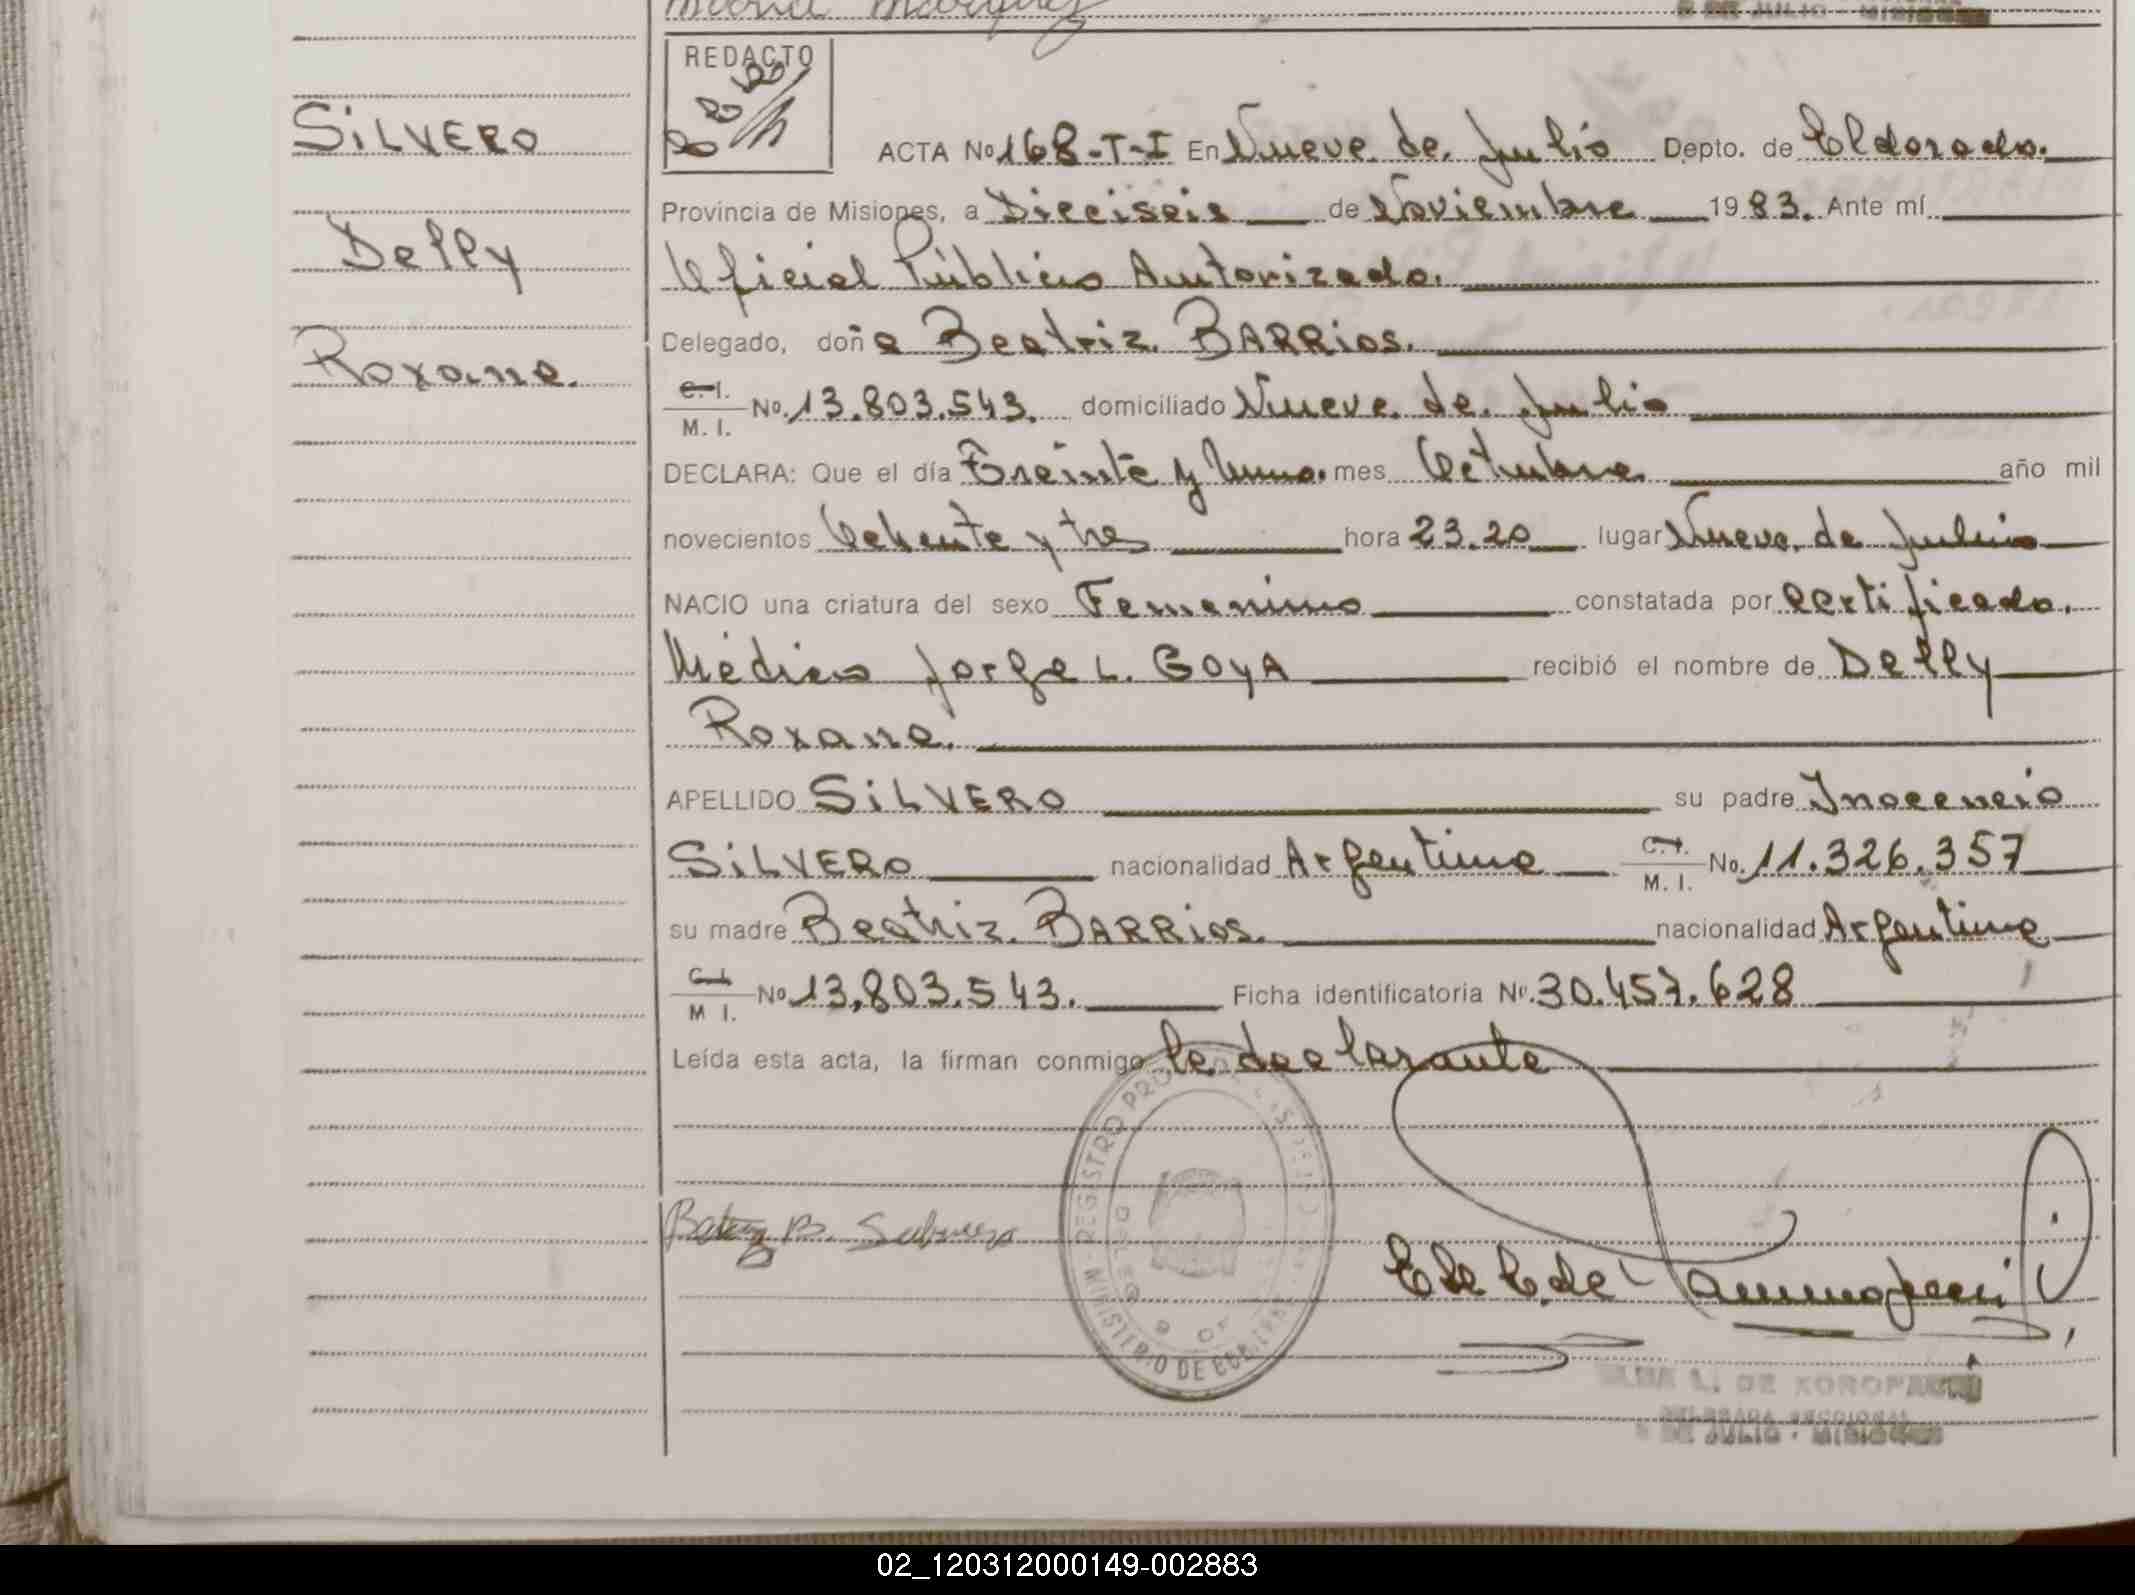 REDACTO
SILVERO
Delly
Roxana.
ACTA No 168-T-I En Nueve de Julio Depto. de Eldorado.
Provincia de Misiones, a Dieciseis de Noviembre 1983. Ante mí
Oficial Público Autorizado.
Delegado, doña Beatriz BARRIOS.
C. I.
M. I. No. 13.803.543. domiciliado Nueve de Julio
DECLARA: Que el día Treinta y Uno. mes Octubre año mil
novecientos Ochenta y tres hora 23.20 lugar Nueve de Julio
NACIO una criatura del sexo Femenino constatada por Certificado.
Médico Jorge L. GOYA recibió el nombre de Delly
Roxana.
APELLIDO SILVERO su padre Inocencio
SILVERO nacionalidad Argentina C. I.
M. I. No. 11.326.357
su madre Beatriz BARRIOS. nacionalidad Argentina
C. I.
M. I. No 13.803.543. Ficha identificatoria No. 30.457.628
Leída esta acta, la firman conmigo la declarante
REGISTRO
MINISTERIO DE
B.
DE
DE JULIO - MISIONES
02_120312000149-002883